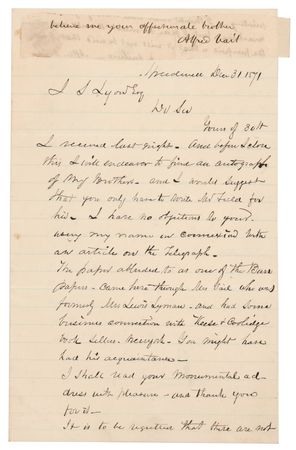 believe me your affectionate brother
Alfred Vail
Dec 31 1871
J S Lyon Esq
Dr Sir
Yours of 30th
I received last night. And before I close
this I will endeavor to find an autograph
of My Brothers - and I would suggest
that you only have to write Mr Field for
his - I have no objections to your
using my name in connexion with
an article on the Telegraph -
The paper alluded to as one of the Burr
papers - Came here through Mr Vail who was
formerly Mrs Lewis Lyman - and had some
business connection with Keese & Cooledge
Book Sellers Newyork - You might have
had his acquaintance -
I shall read your Monumental ad-
dress with pleasure - and thank you
for it -
It is to be regretted that there are not